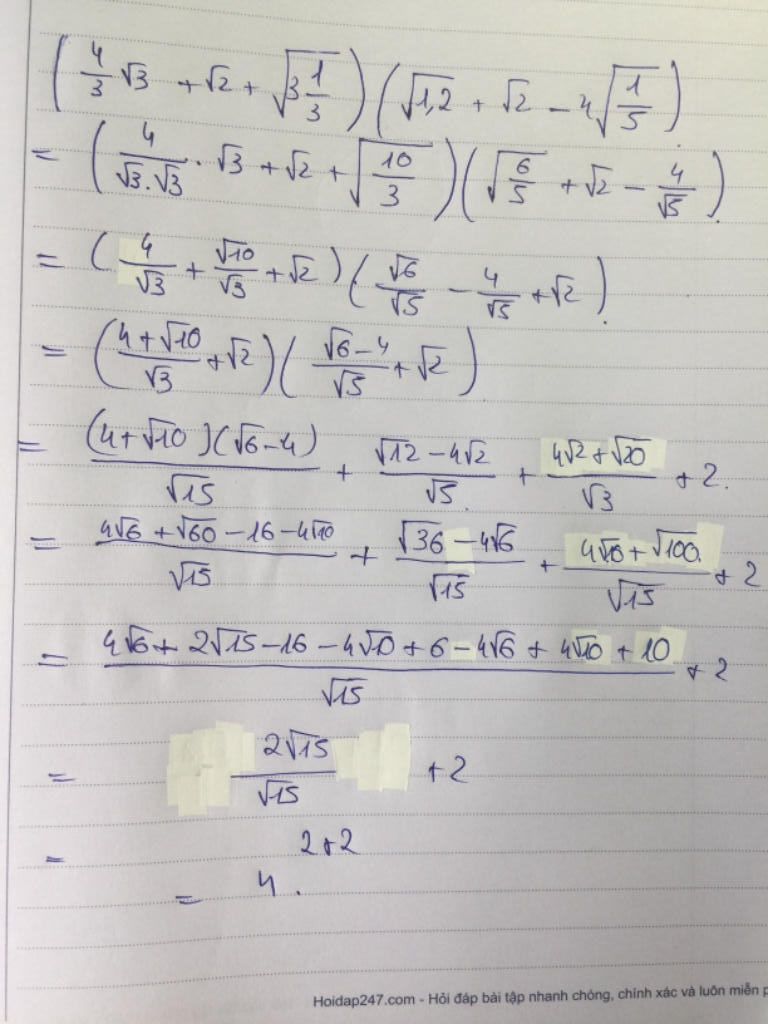 (4/3 √3 + √2 + √(3 1/3)) (√1,2 + √2 - 4√(1/5))
= (4/(√3.√3) . √3 + √2 + √(10/3)) (√(6/5) + √2 - 4/√5)
= (4/√3 + √10/√3 + √2) (√6/√5 - 4/√5 + √2)
= ((4+√10)/√3 + √2) ((√6-4)/√5 + √2)
= (4+√10)(√6-4)/√15 + (√12-4√2)/√5 + (4√2+√20)/√3 + 2.
= (4√6+√60-16-4√10)/√15 + (√36-4√6)/√15 + (4√10+√100)/√15 + 2
= (4√6+2√15-16-4√10+6-4√6+4√10+10)/√15 + 2
= 2√15/√15 + 2
= 2+2
= 4.
Hoidap247.com - Hỏi đáp bài tập nhanh chóng, chính xác và luôn miễn p